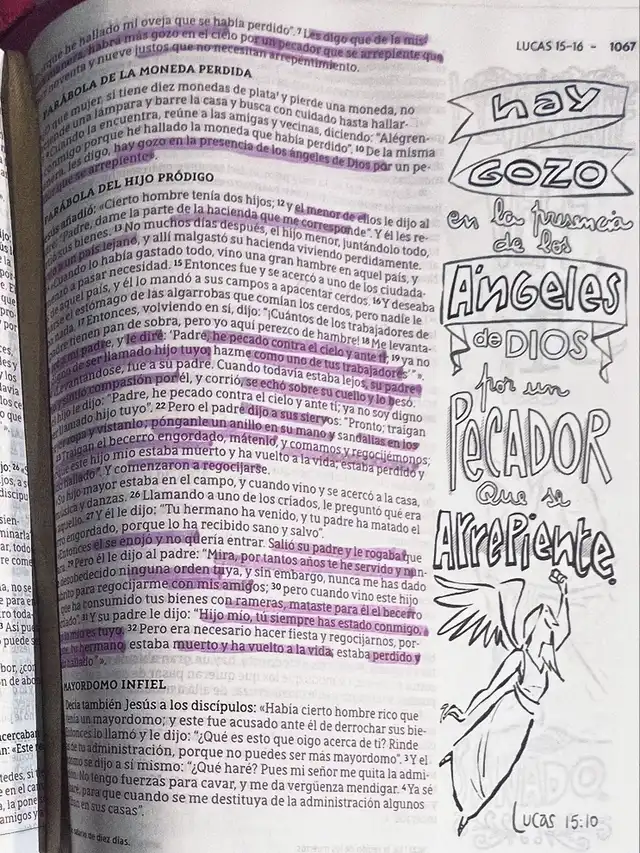 LUCAS 15-16 – 1067
que he hallado mi oveja que se había perdido". 7 Les digo que de la mis-
manera, habrá más gozo en el cielo por un pecador que se arrepiente que
noventa y nueve justos que no necesitan arrepentimiento.
PARÁBOLA DE LA MONEDA PERDIDA
qué mujer, si tiene diez monedas de plata y pierde una moneda, no
una lámpara y barre la casa y busca con cuidado hasta hallar-
Cuando la encuentra, reúne a las amigas y vecinas, diciendo: "Alégren-
conmigo porque he hallado la moneda que había perdido". 10 De la misma
les digo, hay gozo en la presencia de los ángeles de Dios por un pe-
que se arrepiente».
PARÁBOLA DEL HIJO PRÓDIGO
añadió: «Cierto hombre tenía dos hijos; 12 y el menor de ellos le dijo al
"Padre, dame la parte de la hacienda que me corresponde". Y él les re-
sus bienes. 13 No muchos días después, el hijo menor, juntándolo todo,
país lejano, y allí malgastó su hacienda viviendo perdidamente.
Cuando lo había gastado todo, vino una gran hambre en aquel país, y
a pasar necesidad. 15 Entonces fue y se acercó a uno de los ciudada-
aquel país, y él lo mandó a sus campos a apacentar cerdos. 16 Y deseaba
el estómago de las algarrobas que comían los cerdos, pero nadie le
17 Entonces, volviendo en sí, dijo: "¡Cuántos de los trabajadores de
padre tienen pan de sobra, pero yo aquí perezco de hambre! 18 Me levanta-
mi padre, y le diré: 'Padre, he pecado contra el cielo y ante ti; 19 ya no
de ser llamado hijo tuyo; hazme como uno de tus trabajadores'".
Levantándose, fue a su padre. Cuando todavía estaba lejos, su padre
sintió compasión por él, y corrió, se echó sobre su cuello y lo besó.
hijo le dijo: "Padre, he pecado contra el cielo y ante ti; ya no soy digno
llamado hijo tuyo". 22 Pero el padre dijo a sus siervos: "Pronto; traigan
ropa y vístanlo, pónganle un anillo en su mano y sandalias en los
Traigan el becerro engordado, mátenlo, y comamos y regocijémonos;
este hijo mío estaba muerto y ha vuelto a la vida; estaba perdido y
hallado". Y comenzaron a regocijarse.
Su hijo mayor estaba en el campo, y cuando vino y se acercó a la casa,
música y danzas. 26 Llamando a uno de los criados, le preguntó qué era
aquello. 27 Y él le dijo: "Tu hermano ha venido, y tu padre ha matado el
engordado, porque lo ha recibido sano y salvo".
Entonces él se enojó y no quería entrar. Salió su padre y le rogaba que
29 Pero él le dijo al padre: "Mira, por tantos años te he servido y nun-
desobedecido ninguna orden tuya, y sin embargo, nunca me has dado
para regocijarme con mis amigos; 30 pero cuando vino este hijo
que ha consumido tus bienes con rameras, mataste para él el becerro
31 Y su padre le dijo: "Hijo mío, tú siempre has estado conmigo,
mío es tuyo. 32 Pero era necesario hacer fiesta y regocijarnos, por-
tu hermano, estaba muerto y ha vuelto a la vida; estaba perdido y
hallado"».
MAYORDOMO INFIEL
Decía también Jesús a los discípulos: «Había cierto hombre rico que
tenía un mayordomo; y este fue acusado ante él de derrochar sus bie-
Entonces lo llamó y le dijo: "¿Qué es esto que oigo acerca de ti? Rinde
de tu administración, porque no puedes ser más mayordomo". 3 Y el
se dijo a sí mismo: "¿Qué haré? Pues mi señor me quita la admi-
No tengo fuerzas para cavar, y me da vergüenza mendigar. 4 Ya sé
para que cuando se me destituya de la administración algunos
en sus casas".
salario de diez días.
hay
GOZO
en la presencia
de los
ÁNGELES
de DIOS
por un
PECADOR
que se
ARREPIENTE.
LUCAS 15:10